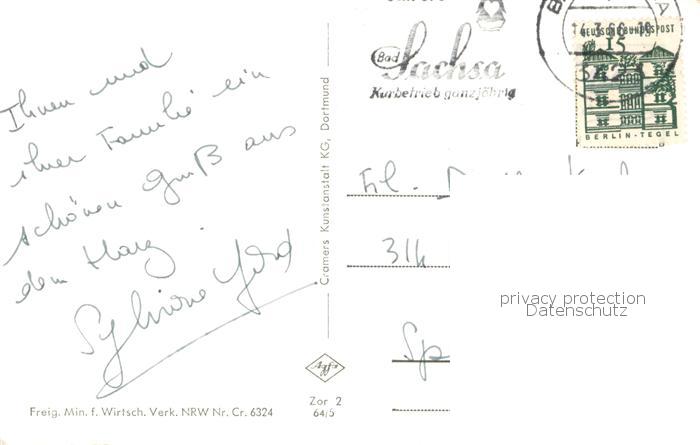 Bad
Sachsa
Kurbetrieb ganzjährig
DEUTSCHE BUNDESPOST
15
BERLIN-TEGEL
Ihnen und
ihrer Familie ein
schönen Gruß aus
dem Harz.
Cramers Kunstanstalt KG, Dortmund
Frl.
31h
Sp
privacy protection
Datenschutz
Agfa
Freig. Min. f. Wirtsch. Verk. NRW Nr. Cr. 6324
Zor 2
64/5